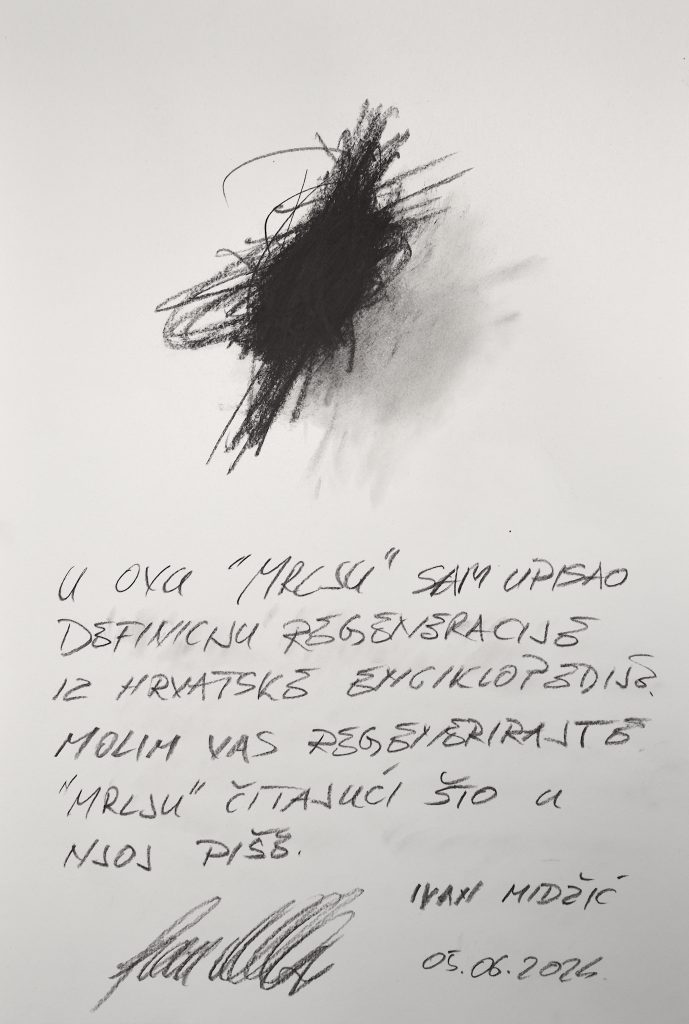 U OVU "MRLJU" SAM UPISAO
DEFINICIJU REGENERACIJE
IZ HRVATSKE ENCIKLOPEDIJE.
MOLIM VAS REGENERIRAJTE
"MRLJU" ČITAJUĆI ŠTO U
NJOJ PIŠE.
IVAN MIDŽIĆ
05.06.2026.